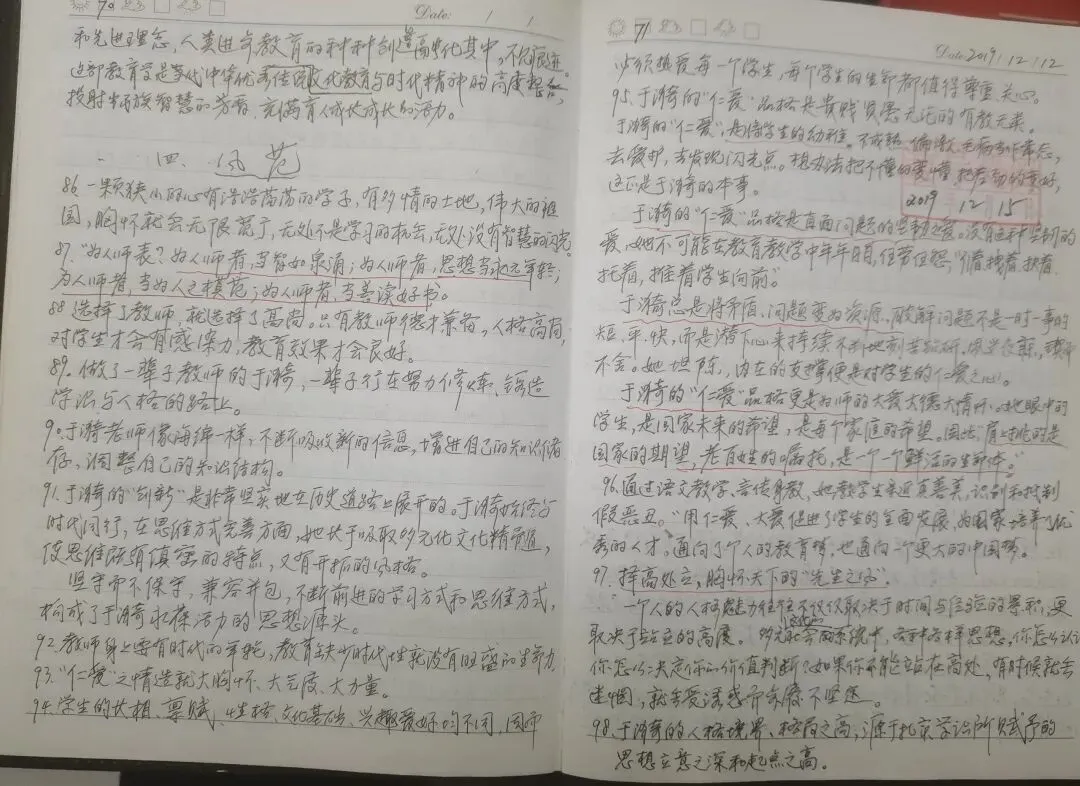 70
Date: / /
和先进理念，人类进步教育的种种创造高度华化其中，不留痕迹。
这部教育学是当代中华优秀传统文化教育与时代精神的高度整合，
投射出民族智慧的芳香，充满育人成长成长的活力。
四、风范
86. 一颗狭小的心有浩浩荡荡的学子，有多情的土地，伟大的祖
国，胸怀就会无限宽广，无处不是学习的机会，无处没有智慧的闪光。
87."为人师表"？为人师者，当智如泉涌；为人师者，思想当永远年轻；
为人师者，当为人之模范；为人师者，当善读好书。
88 选择了教师，就选择了高尚。只有教师德才兼备，人格高尚，
对学生才会有感染力，教育效果才会良好。
89. 做了一辈子教师的于漪，一辈子行在努力修炼、锻造
学识与人格的路上。
90.于漪老师像海绵一样，不断吸收新的信息，增进自己的知识储
存，调整自己的知识结构。
91.于漪的"创新"是非常坚实地在历史道路上展开的。于漪始终与
时代同行，在思维方式完善方面，她长于吸取多元化文化精华，
使思维既有缜密的特点，又有开拓的风格。
坚守而不保守，兼容并包，不断前进的学习方式和思维方式，
构成了于漪永葆活力的思想源头。
92.教师身上要有时代的年轮，教育缺少时代性就没有旺盛的生命力。
93."仁爱"之情造就大胸怀、大气度、大力量。
94.学生的长相、禀赋、性格、文化基础、兴趣爱好均不同，因师
71
Date 2019/12/12
必须热爱每一个学生，每个学生的生命都值得尊重、关心。
95.于漪的"仁爱"品格是贵贱贤愚无论的有教无类。
于漪的"仁爱"，是将学生的幼稚、不成熟、偏激、毛病当作常态，
去爱护，去发现闪光点。想办法把不懂的变懂，把差劲的变好，
这正是于漪的本事。
2019 12 15
于漪的"仁爱"品格是直面问题的坚韧之爱。没有这种坚韧的
爱，她不可能在教育教学中年年日日，任劳任怨，"引着、拽着、扶着、
托着，推着学生向前"。
于漪总是将矛盾、问题变为资源，破解问题不是一时一事的
短、平、快，而是潜下心来持续不断地刻苦钻研。
不舍。她坦陈，内在的支撑便是对学生的仁爱之心。
于漪的"仁爱"品格更是为师的大爱大德大情怀。她眼中的
学生，是国家未来的希望，是每个家庭的希望。因此，肩上挑的是
国家的期望，老百姓的嘱托，是一个个鲜活的生命体。"
96.通过语文教学，言传身教，她教学生亲近真善美，识别和抵制
假恶丑。"用仁爱、大爱促进了学生的全面发展，为国家培养了优
秀的人才。通向了个人的教育梦，也通向一个更大的中国梦。
97. 择高处立，胸怀天下的"先生之风"。
一个人的人格魅力往往不仅仅取决于时间与经验的累积，更
取决于站立的高度。多元社会中，各种各样思想，你怎么认识？
你怎么决定你的价值判断？如果你不能立站在高处，有时候就会
迷惘，就会受诱惑而不坚定。
98.于漪的人格境界、格局之高，源于扎实学识所赋予的
思想立意之深和起点之高。